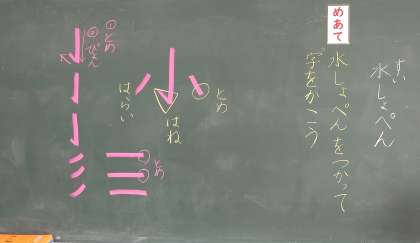 すい
水しょぺん
めあて
水しょぺんをつかって
字をかこう
とめ
はね
はらい
とめ
①とめ
②ぴょん